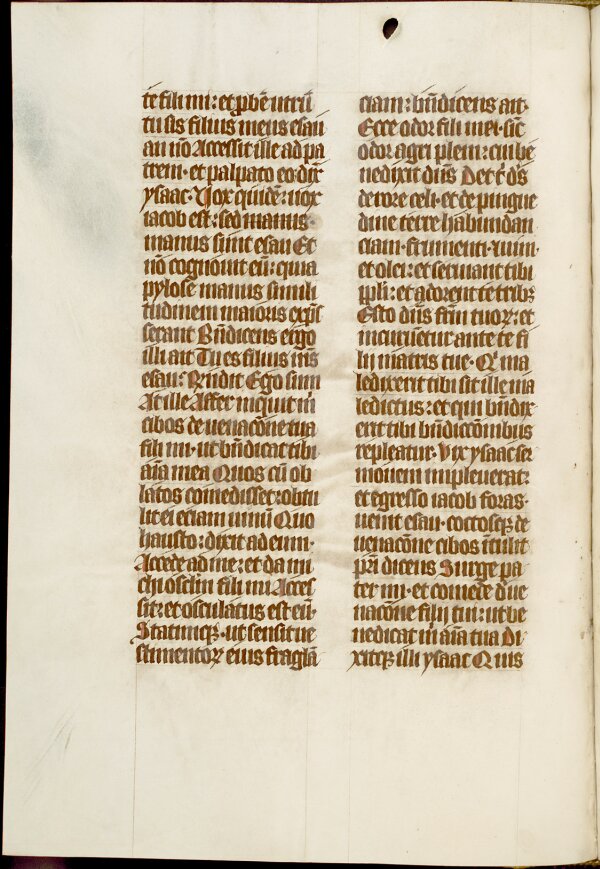 te fili mi : et ꝓbē utrū
tu sis filius meus esau
an nō Accessit ille ad pa
trem · et palpato eo dix̄
ysaac · Vox quidē : uox
iacob est : sed manus ·
manus sunt esau Et
nō cognouit eū : quia
pylose manus simili
tudinem maioris exp̄s
serant Bn̄dicens ergo
illi ait Tu es filius m̄s
esau : Rn̄dit Ego sum
At ille Affer inquit m̄
cibos de uenacōne tua
fili mi · ut bn̄dicat tibi
aīa mea Quos cū ob
latos comedisset : obtu
lit ei eciam uinū Quo
hausto : dixit ad eum ·
Accede ad me : et da mi
chi osclm̄ fili mi Acces
sit : et osculatus est eū ·
Statimqꝫ · ut sensit ue
stimentoꝝ eius fraglā
ciam : bn̄dicens ait ·
Ecce odor fili mei · sic̄
odor agri pleni : cui be
nedixit dn̄s Det t̄ ds̄
de rore celi · et de pingue
dine terre habundan
ciam · frumenti · uini ·
et olei : et seruiant tibi
ppl̄i : et adorent te tribꝫ
Esto dn̄s frm̄ tuoꝝ : et
incuruētur ante te fi
lij matris tue · Qⁱ ma
ledixerit tibi sit ille ma
ledictus : et qui bn̄dix
erit tibi bn̄dicc̄onibus
repleatur · Vix ysaac ser
monem impleuerat :
et egresso iacob foras ·
uenit esau · coctosqꝫ de
uenacōne cibos ītulit
pr̄i dicens Surge pa
ter mi · et comede de ue
nacōne filij tui : ut be
nedicat m̄ aīa tua Di
xitqꝫ illi ysaac Quis